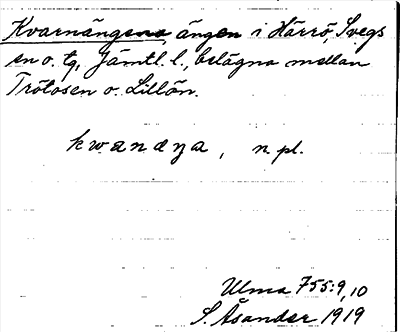 Kvarnängena, ängen i Härrö, Svegs
sn o. tg, Jämtl. l., belägna mellan
Trötosen o. Lillön.
kwanæŋa, n. pl.
Ulma 755:9,10
S. Åsander 1919